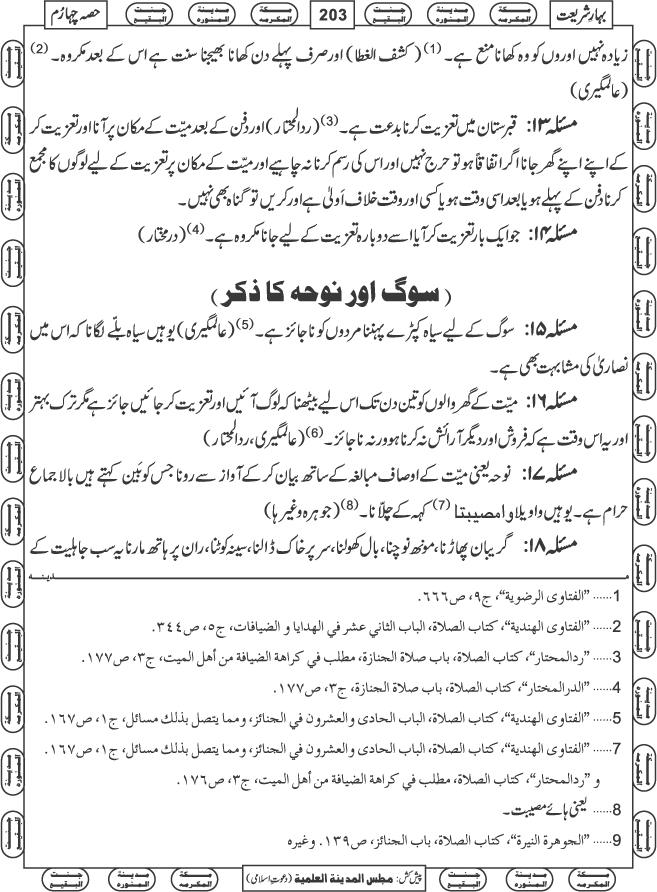 بہارِ شریعت
203
حصہ چہارم
زیادہ نہیں اوروں کو وہ کھانا منع ہے۔ (1) (کشف الغطا) اور صرف پہلے دن کھانا بھیجنا سنت ہے اس کے بعد مکروہ۔ (2)
(عالمگیری)
مسئلہ ۱۳: قبرستان میں تعزیت کرنا بدعت ہے۔ (3) (ردالمحتار) اور دفن کے بعد میّت کے مکان پر آنا اور تعزیت کر
کے اپنے اپنے گھر جانا اگر اتفاقاً ہو تو حرج نہیں اور اس کی رسم کرنا نہ چاہیے اور میّت کے مکان پر تعزیت کے لیے لوگوں کا مجمع
کرنا دفن کے پہلے ہو یا بعد اسی وقت ہو یا کسی اور وقت خلاف اَولیٰ ہے اور کریں تو گناہ بھی نہیں۔
مسئلہ ۱۴: جو ایک بار تعزیت کر آیا اسے دوبارہ تعزیت کے لیے جانا مکروہ ہے۔ (4) (درمختار)
(سوگ اور نوحہ کا ذکر)
مسئلہ ۱۵: سوگ کے لیے سیاہ کپڑے پہننا مردوں کو ناجائز ہے۔ (5) (عالمگیری) یوہیں سیاہ بلّے لگانا کہ اس میں
نصاریٰ کی مشابہت بھی ہے۔
مسئلہ ۱۶: میّت کے گھر والوں کو تین دن تک اس لیے بیٹھنا کہ لوگ آئیں اور تعزیت کر جائیں جائز ہے مگر ترک بہتر
اور یہ اس وقت ہے کہ فروش اور دیگر آرائش نہ کرنا ہو ورنہ ناجائز۔ (6) (عالمگیری، ردالمحتار)
مسئلہ ۱۷: نوحہ یعنی میّت کے اوصاف مبالغہ کے ساتھ بیان کر کے آواز سے رونا جس کو بَین کہتے ہیں بالاجماع
حرام ہے۔ یوہیں واویلا وا مصیبتا (7) کہہ کے چلّانا۔ (8) (جوہرہ وغیرہا)
مسئلہ ۱۸: گریبان پھاڑنا، مونھ نوچنا، بال کھولنا، سر پر خاک ڈالنا، سینہ کوٹنا، ران پر ہاتھ مارنا یہ سب جاہلیت کے
مـدیـنـہ
1...... "الفتاوی الرضویة"، ج۹، ص۶۶۶.
2...... "الفتاوی الهندیة"، کتاب الصلاة، الباب الثاني عشر في الهدایا و الضیافات، ج۵، ص۳۴۴.
3...... "ردالمحتار"، کتاب الصلاة، باب صلاة الجنازة، مطلب في کراهة الضیافة من أهل المیت، ج۳، ص۱۷۷.
4...... "الدرالمختار"، کتاب الصلاة، باب صلاة الجنازة، ج۳، ص۱۷۷.
5...... "الفتاوی الهندیة"، کتاب الصلاة، الباب الحادی والعشرون في الجنائز، ومما یتصل بذلك مسائل، ج۱، ص۱۶۷.
7...... "الفتاوی الهندیة"، کتاب الصلاة، الباب الحادی والعشرون في الجنائز، ومما یتصل بذلك مسائل، ج۱، ص۱۶۷.
و "ردالمحتار"، کتاب الصلاة، مطلب في کراهة الضیافة من أهل المیت، ج۳، ص۱۷۶.
8...... یعنی ہائے مصیبت۔
9...... "الجوهرة النیرة"، کتاب الصلاة، باب الجنائز، ص۱۳۹. وغیرہ
پیش کش: مجلس المدینة العلمیة (دعوتِ اسلامی)